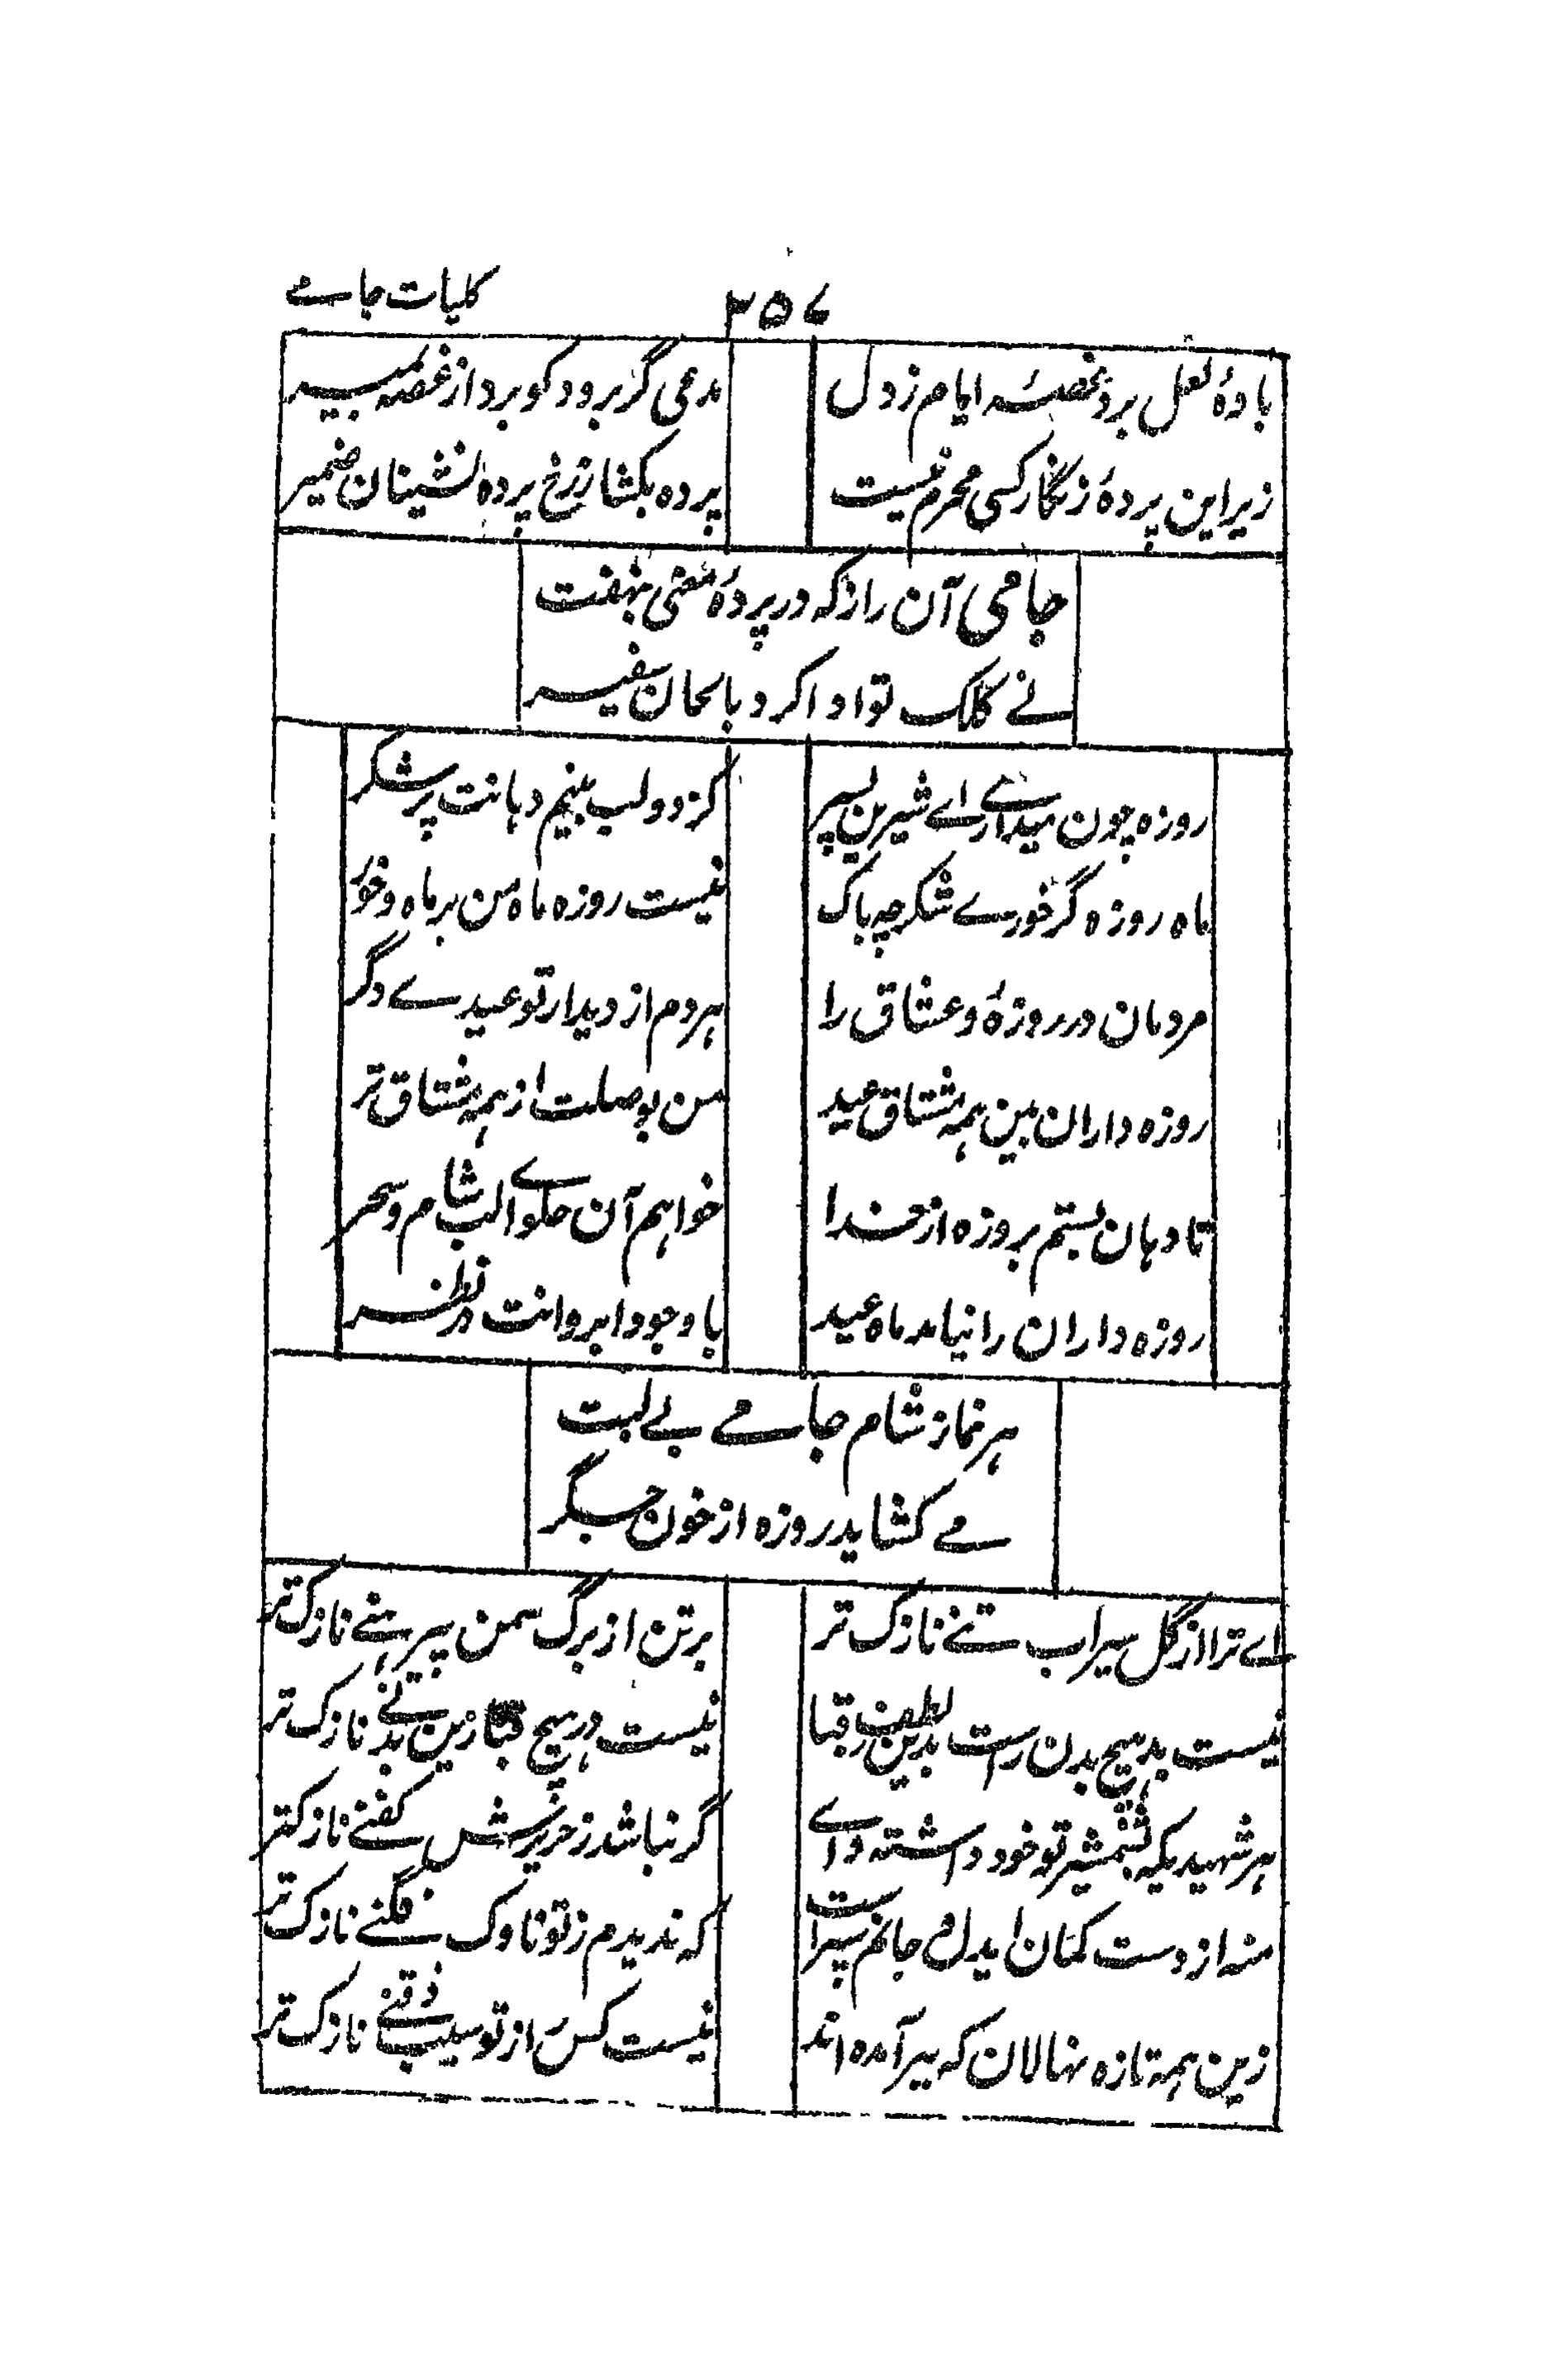 کلیات جامے
۳۵۷
بادهٔ لعل برد غصهٔ ایام ز دل
مدعی گر برود کو برو از غصه بمیر
زیر این پردهٔ زنگار کسی محرم نیست
پرده بکشا ز رخ پرده نشینان ضمیر
جامی آن راز که در پردهٔ معنی بنهفت
نے کلک تو ادا کرد بالحان سفیر
روزه چون میدارے اے شیرین پسر
کز دو لب بینم دهانت پر شکر
ماه روزه گر خورے شکر چه باک
نیست روزه ماه من بر ماه و خور
مردمان در روزهٔ و عشاق را
هر دم از دیدار تو عیدے دگر
روزه داران بین همه مشتاق عید
من بوصلت از همه مشتاق تر
تا دهان بستم بروزه از خدا
خواهم آن حلواے لب شام و سحر
روزه داران را نیامد ماه عید
با وجود ابروانت در نظر
هر نماز شام جامے بے لبت
مے کشاید روزه از خون جگر
اے ترا از گل سیراب تنے نازک تر
بر تن از برگ سمن پیرهنے نازک تر
نیست بر هیچ بدن راست بدین لطف قبا
نیست در هیچ قبا زین بدنے نازک تر
هر شهیدیکه بشمشیر تو خود داشته واے
گر نباشد ز حریرش کفنے نازکتر
منه از دست کمان اے دل و جانم سپرت
که ندیدم ز تو ناوک فگنے نازک تر
زین همه تازه نهالان که ببر آمده اند
نیست کس را ز تو سیب ذقنے نازک تر